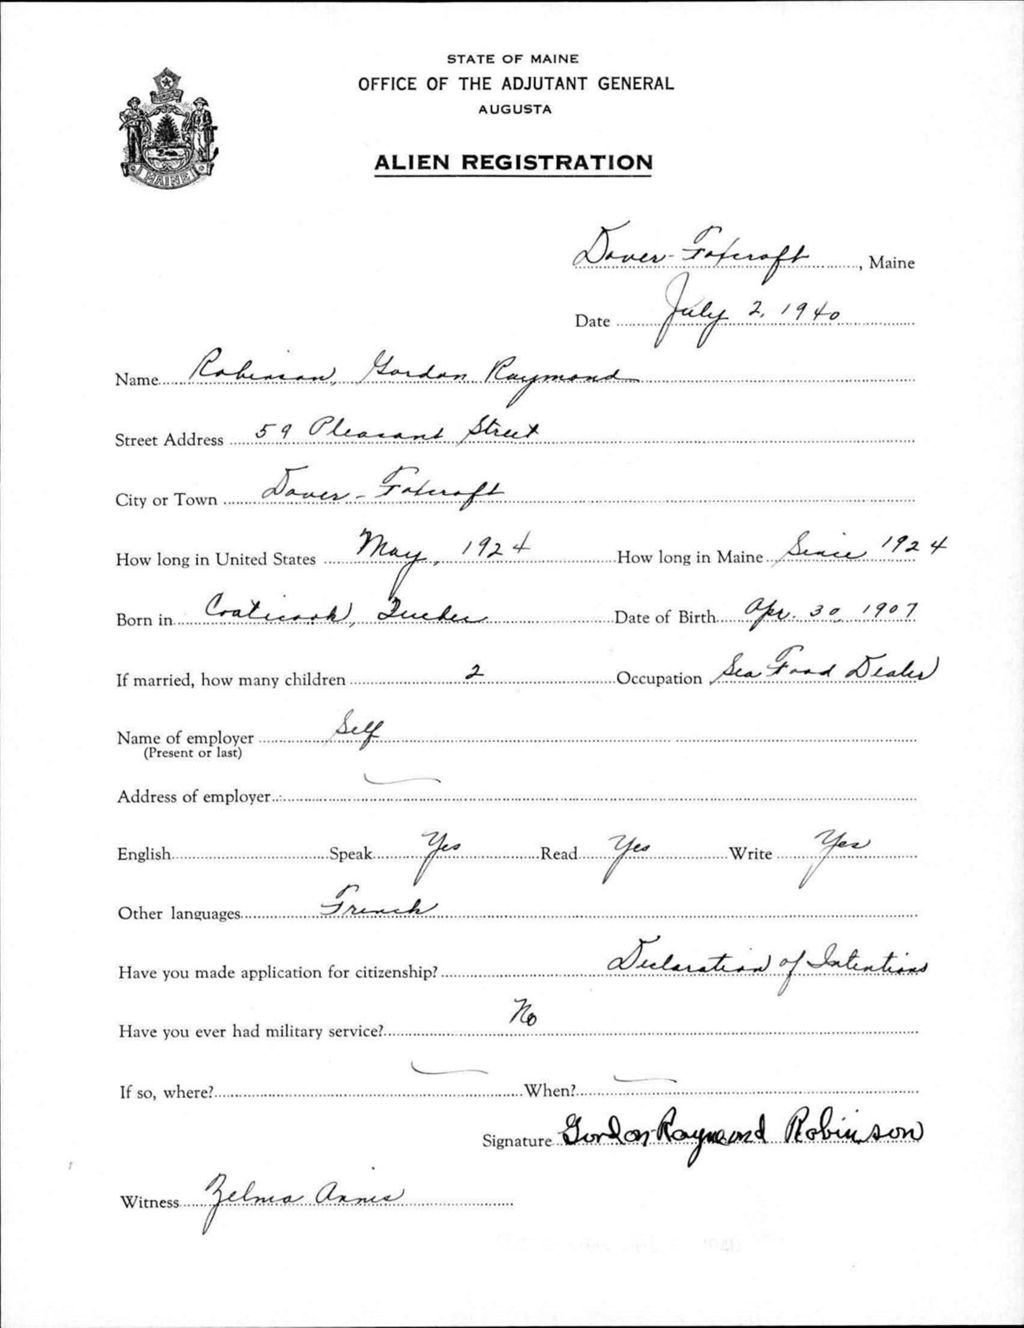 STATE OF MAINE
OFFICE OF THE ADJUTANT GENERAL
AUGUSTA
MAINE
ALIEN REGISTRATION
Dover-Foxcroft, Maine
Date July 2, 1940
Name Robinson, Gordon Raymond
Street Address 59 Pleasant Street
City or Town Dover-Foxcroft
How long in United States May, 1924 How long in Maine Since 1924
Born in Coaticook, Quebec Date of Birth Apr. 30, 1907
If married, how many children 2 Occupation Sea Food Dealer
Name of employer Self
(Present or last)
Address of employer
English Speak Yes Read Yes Write Yes
Other languages French
Have you made application for citizenship? Declaration of Intentions
Have you ever had military service? No
If so, where? When?
Signature Gordon Raymond Robinson
Witness Zelma Annis